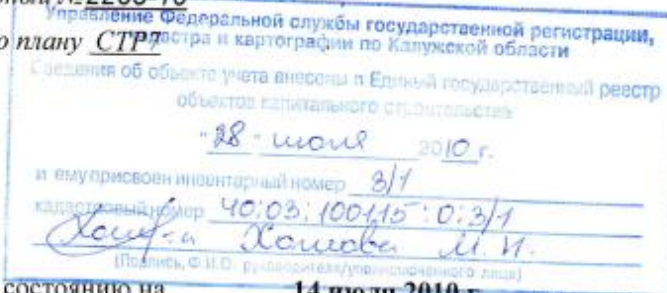 №2203-10
Управление Федеральной службы государственной регистрации,
о плану СТР7
кадастра и картографии по Калужской области
Сведения об объекте учета внесены в Единый государственный реестр
объектов капитального строительства
"28" июля 2010 г.
и ему присвоен инвентарный номер 3/1
кадастровый номер 40:03:100115:0:3/1
М. Н.
(Подпись, Ф.И.О. руководителя/уполномоченного лица)
состоянию на 14 июля 2010 г.